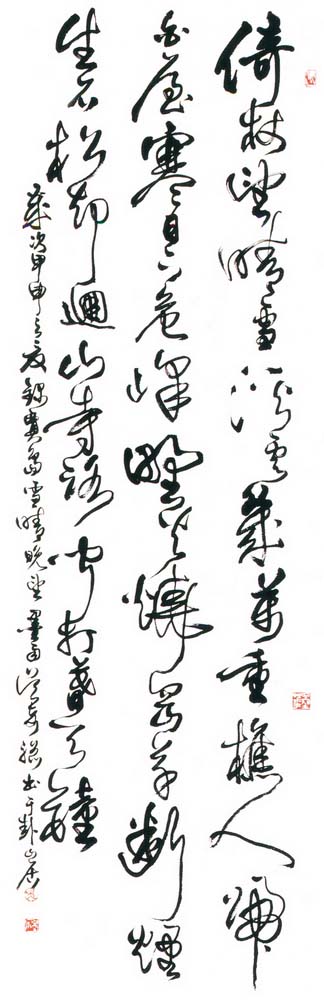 倚杖望晴雪溪雲幾萬重樵人歸
白屋寒日下危峰野火燒岡草斷煙
生石松却迴山寺路聞打暮天鐘
歲次甲申之夏錄賈島雪晴晚望 書于卦山居